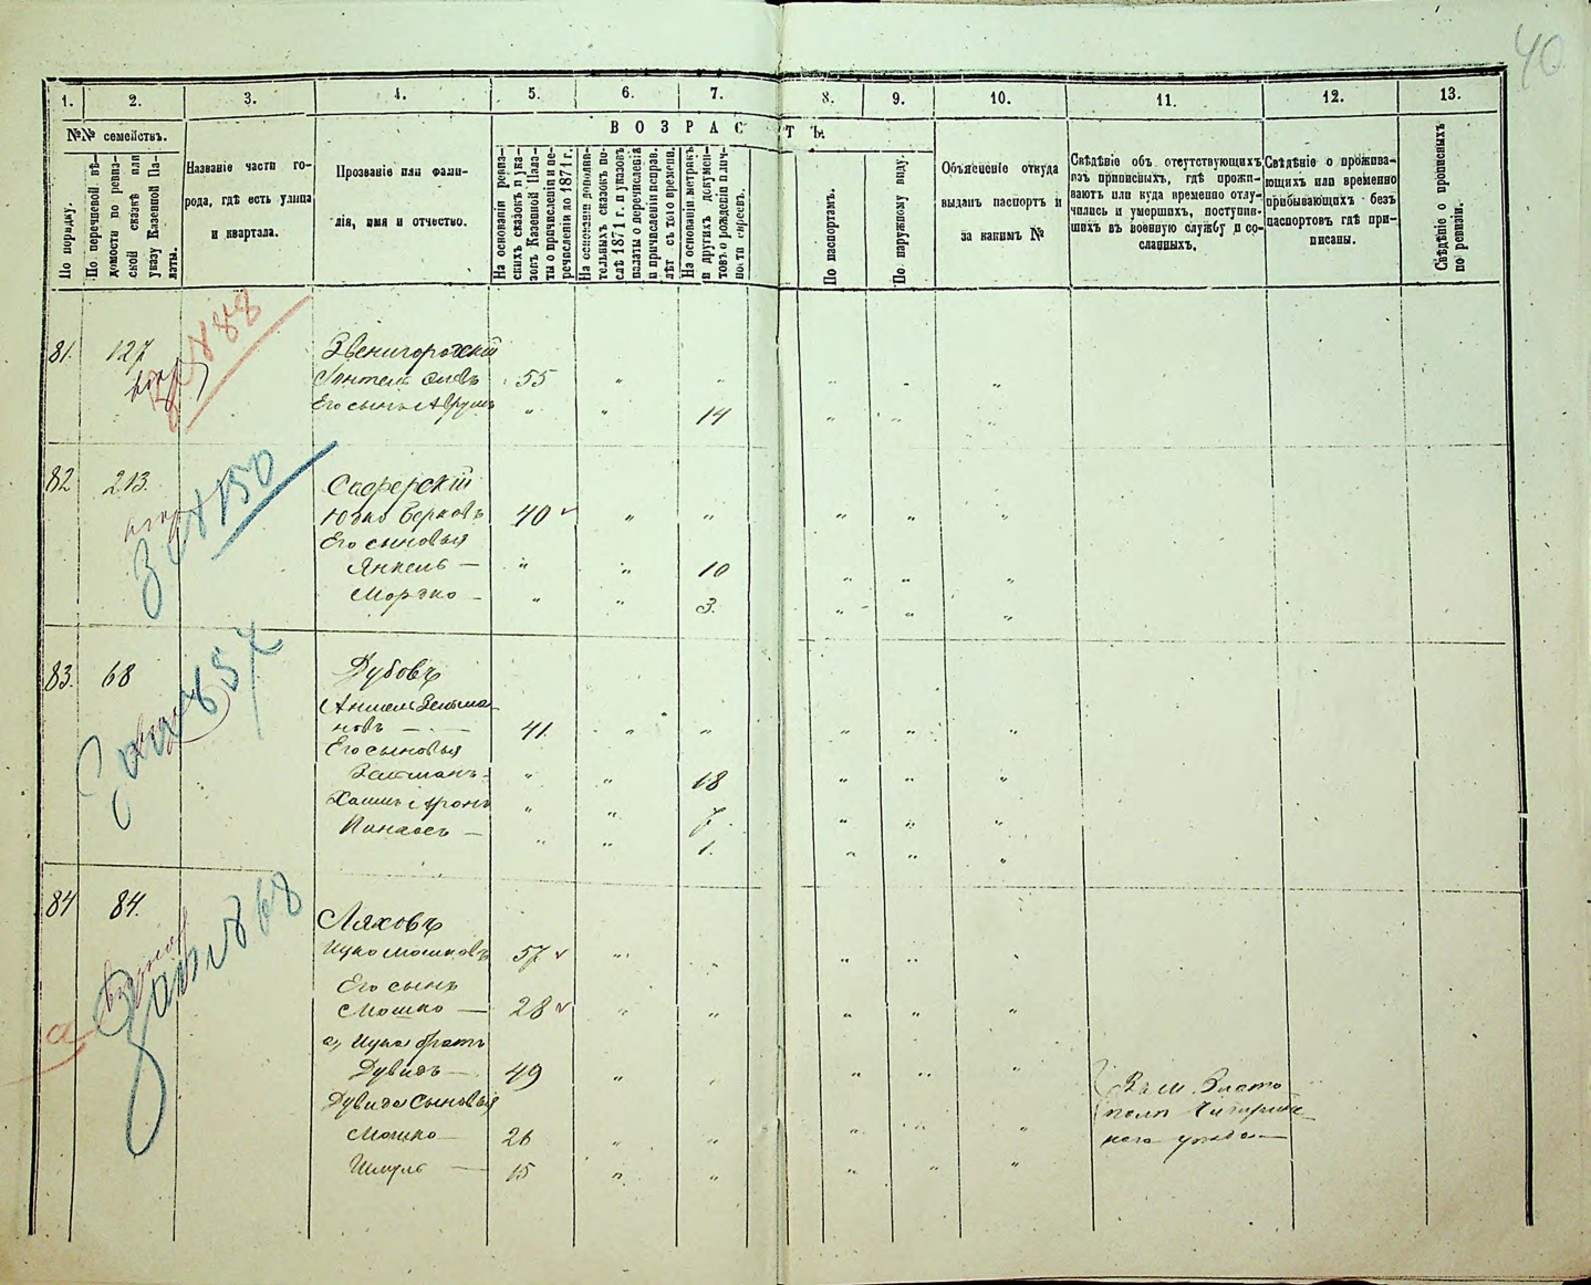 40
1. 2. 3. 4. 5. 6. 7. 8. 9. 10. 11. 12. 13.
№№ семействъ.
ВОЗРАСТЪ.
По порядку.
По перечневой вѣ-
домости по ревиз-
ской сказкѣ или
указу Казенной Па-
латы.
Названіе части го-
рода, гдѣ есть улица
и квартала.
Прозваніе или фами-
лія, имя и отчество.
На основаніи ревиз-
скихъ сказокъ и ука-
зовъ Казенной Пала-
ты о причисленіи и пе-
речисленіи до 1871 г.
На основаніи дополни-
тельныхъ сказокъ по-
слѣ 1871 г. и указовъ
палаты о перечисленіи
и причисленіи исправ.
лѣт съ того времени.
На основаніи метрикъ
и другихъ докумен-
товъ о рожденіи лич-
ности евреевъ.
По паспортамъ.
По наружному виду.
Объясненіе откуда
выданъ паспортъ и
за какимъ №
Свѣдѣніе объ отсутствующихъ
изъ приписныхъ, гдѣ прожи-
ваютъ или куда временно отлу-
чились и умершихъ, поступив-
шихъ въ военную службу и со-
сланныхъ.
Свѣдѣніе о прожива-
ющихъ или временно
прибывающихъ безъ
паспортовъ гдѣ при-
писаны.
Свѣдѣніе о прописныхъ
по ревизіи.
81. 127 888
Звенигородскій
55 " " " " "
Его сынъ Аврумъ " " 14 " " "
82 213. 150
Саферскій
Юдко Берковъ 40 " " " " "
Его сыновья
Янкель — " " 10 " " "
Мордко — " " 3. " " "
83. 68 857
Дубовъ
Аншель Зельма-
новъ — 41. " " " " "
Его сыновья
Зельманъ " " 18 " " "
Хаимъ Аронъ " " 7. " " "
Пинхосъ — " " 1. " " "
84 84. 868
Ляховъ
Ицко Мошковъ 57 " " " " "
Его сынъ
Мошко — 28 " " " " "
а, Ицка братъ
Дувидъ — 49 " " " " "
Дувида сыновья
Мошко — 26 " " " " "
Шмуль — 15 " " " " "
Въ м. Злато
поли Чигирин-
кого уезда —